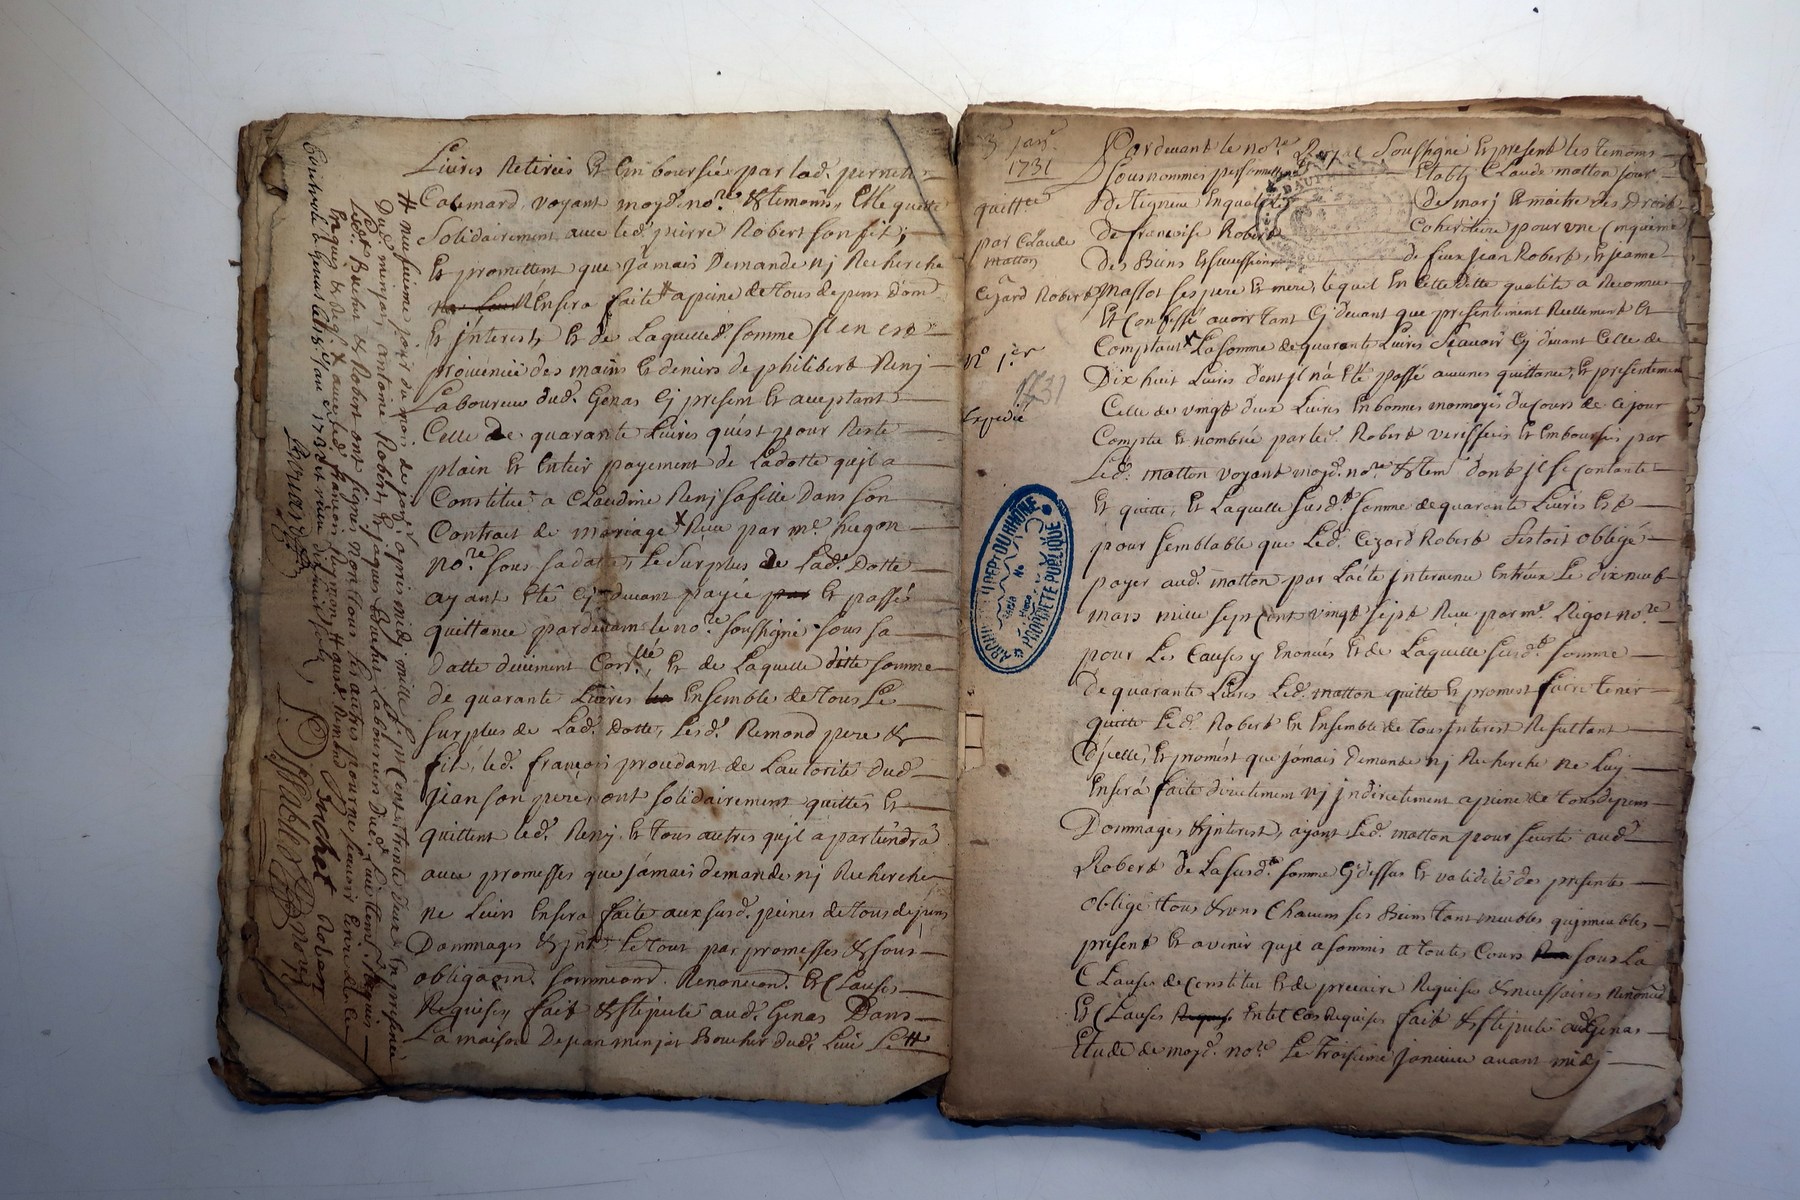 Livres Retirées Et Emboursée par lad. pernette
Calemard voyant moyd. nore. & temoins, Elle quitte
Solidairement avec led. pierre Robert son fils,
Et promettent que jamais Demande nj Recherche
n'Ensera faite # a peine de tous depens dom
Et jnterests Et de Laquelle d. somme Il en est
provenüe des mains Et deniers de philibert Renj
Laboureur dud. Genas Cj present Et acceptant
Celle De quarante Livres qu'est pour Reste
plain Et Entier payement de Ladotte qujl a
Constitué a Claudine Renj safille Dans son
Contrait de mariage x Receu par me. hugon
nore. sous sa datte, Le surplus de Lad. Dotte
ayant Eté Cj devant payée Et passé
quittance pardevant le nore. soussigné sous sa
datte duement Conllé, Et de Laquelle ditte somme
de quarante Livres Ensemble de tous Le
surplus de Lad. Dotte, Lesd. Remond pere &
fils, led. françois procedant de Lautorité dud.
jean son pere, ont solidairement quittés Et
quittent led. Renj Et tous autres qujl apartiendra
avec promesses que jamais demande nj Recherche
ne Luien Ensera faite aux susd. peines de tous depens
Dommages & jnts. Le tout par promesses & sous
obligaõn. soumiõns. Renonciaõn. Et Clauses
Requises, fait & stipulé aud. Genas Dans
La maison De jean minjat Boucher dud. Lieu Le #
# neufvieme jour du mois de janer. apres midj mille sept Cent trente Deux En presence
Dud. minjat, antoine Robert Et jaques Buchet Laboureur dud. Lieu tems. Requis
Led. Buchet & Robert ont signés non tous les autres pour ne sçavoir Ecrire de ce
Enquis & Req. x avec led. françois Remond # aud. Remond
Controlé a Genas le 15e. jan. 1732
Buchet Robert
3 janr.
1731
quittce
par Claude
matton
a
Cezard Robert
No 1.er
1731
Expedié
Pardevant le nore. Royal Soussigné Et present les temoins
sousnommes personnellement Etably Claude matton jour
De Tigneu Enqualité De marj Et maitre des Droits
De francoise Robert Coheritiere pour une Cinquieme
Des Biens Et succession de feux Jean Robert, Et jeanne
Massot ses pere Et mere, lequel En Cette ditte qualité a Reconnu
Et Confessé avoir tant Cj devant que presentement Reellement Et
Comptant x La somme de quarante Livres Sçavoir Cj devant Celle de
Dix huit Livres dont jl n'a Eté passé aucunes quittance, Et presentement
Celle de vingt deux Livres En bonnes monnoyes du Cours de Ce jour
Comptée Et nombrée par led. Robert veriffiées Et Emboursées par
Led. matton voyant moyd. nore. & tem. dont jl se Contante
Et quitte, Et Laquelle susdte. somme de quarante Livres Est
pour semblable que Led. Cezard Robert s'estoit obligé
payer aud. matton par Lacte jntervenu Entreux Le dix neuf
mars mille sept Cent vingt sept Receu par me. Rigot nore.
pour Les Causes y Enoncés Et de Laquelle susdte. somme
de quarante Livres Led. matton quitte Et promest faire tenir
quitte Led. Robert Et Ensemble de tous jnterest Resultant
d'jcelle, Et promest que jamais Demande nj Recherche ne Luy
Ensera faite directement nj jndirectement a peine de tous depens
Dommages & jnterest, ayant Led. matton pour seurté aud.
Robert de La susdte. somme Cj dessus Et validité des presente
obligé tous & uns Chacuns ses Biens tant meubles qujmeubles
present Et avenir qujl a soumis a toutes Cours sous La
Clause de Constitut Et de precaire Requises & necessaires Renonce
Et Clauses En tel Cas Requises fait & stipulé aud. Genas
Etude de moyd. nore. Le troisieme janvier avant midj
ARCHIVES DU DEPT DU RHÔNE
PROPRIÉTÉ PUBLIQUE